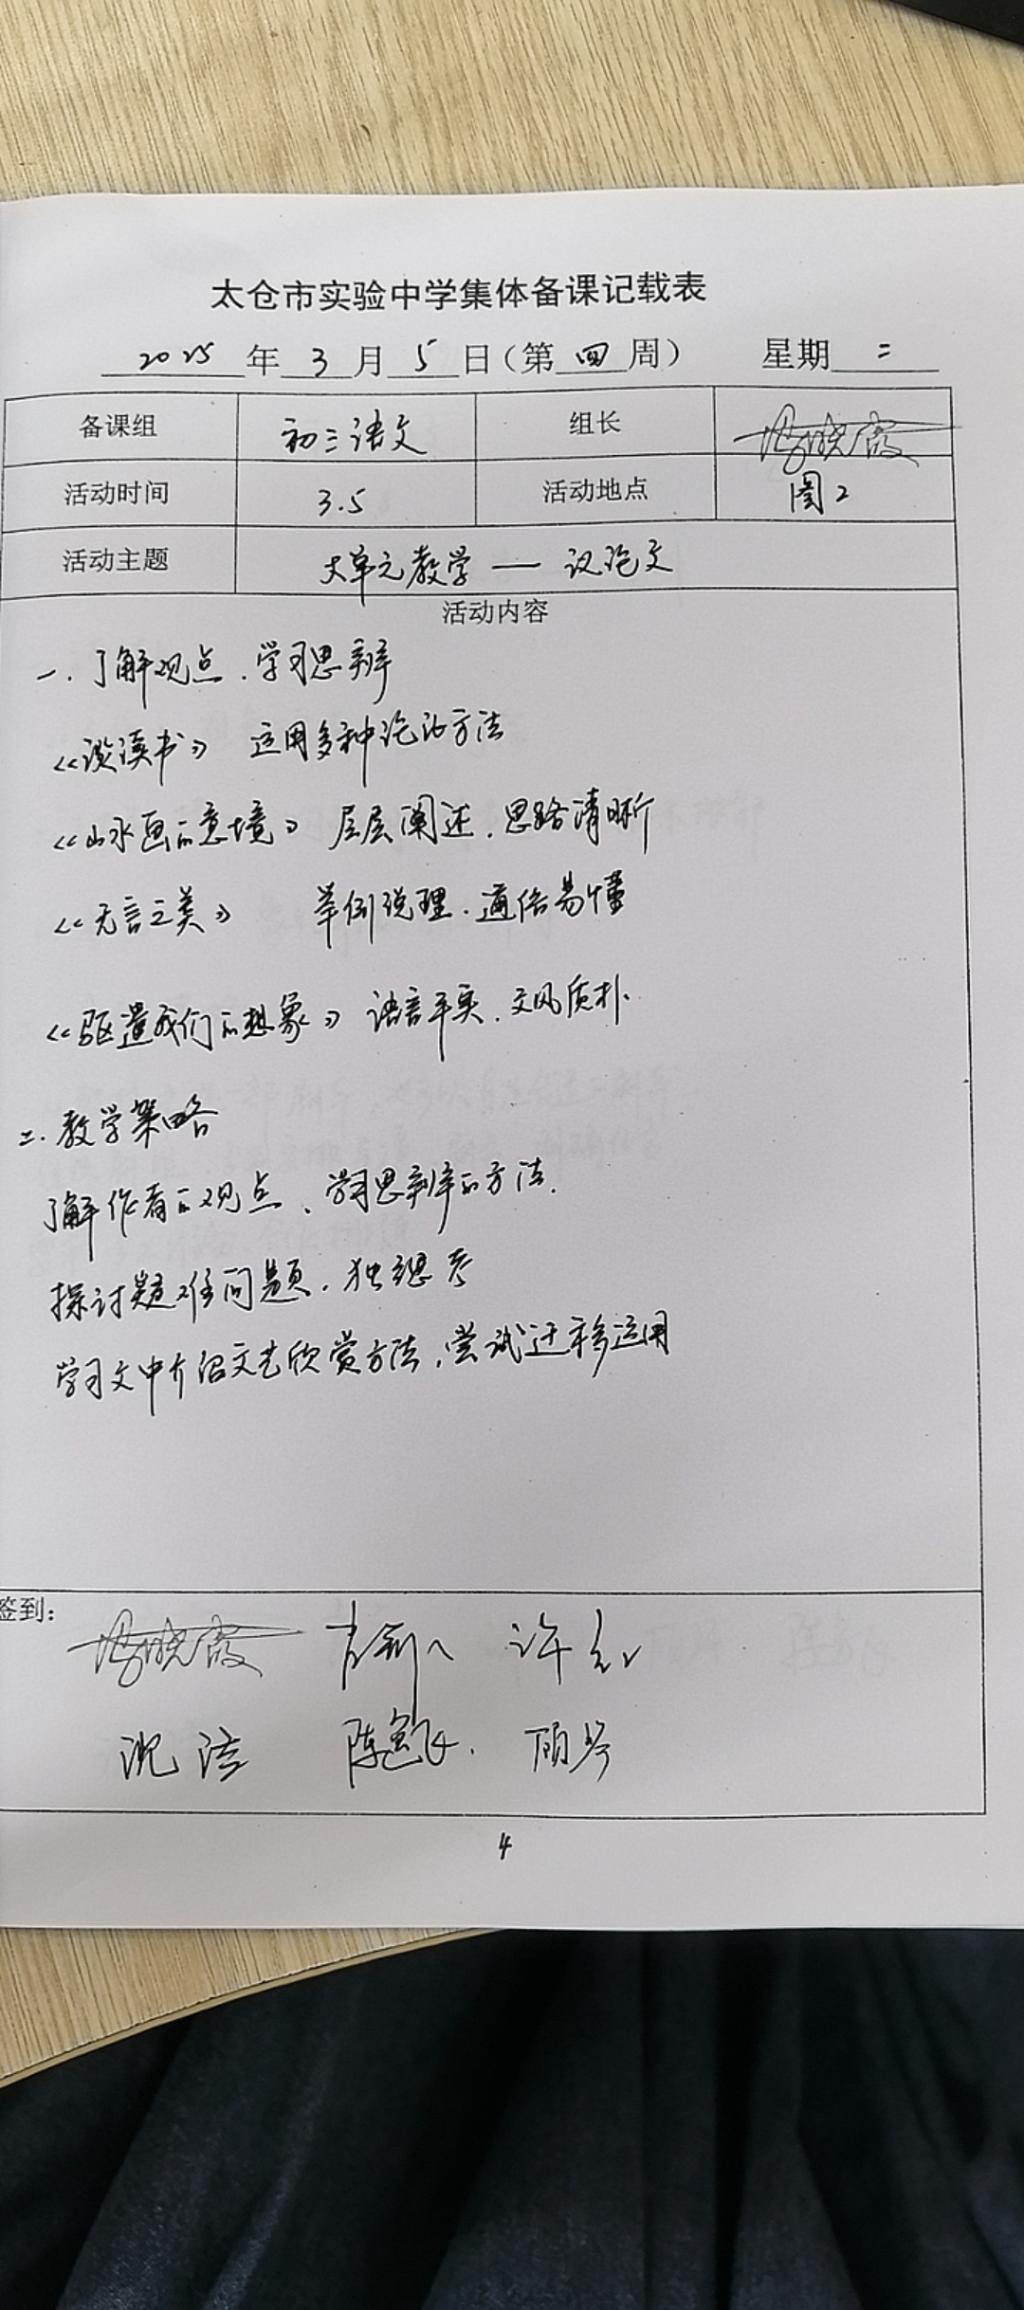 太仓市实验中学集体备课记载表
2025年3月5日（第四周） 星期二
备课组 初三语文 组长
活动时间 3.5 活动地点 图2
活动主题 大单元教学——议论文
活动内容
一.了解观点、学习思辨
《谈读书》 运用多种论证方法
《山水画的意境》 层层阐述，思路清晰
《无言之美》 举例说理，通俗易懂
《驱遣我们的想象》 语言平实，文风质朴
二.教学策略
了解作者的观点、学习思辨的方法.
探讨疑难问题，独立思考
学习文中介绍文艺欣赏方法，尝试迁移运用
签到：
许红
沈洁 顾琴
4